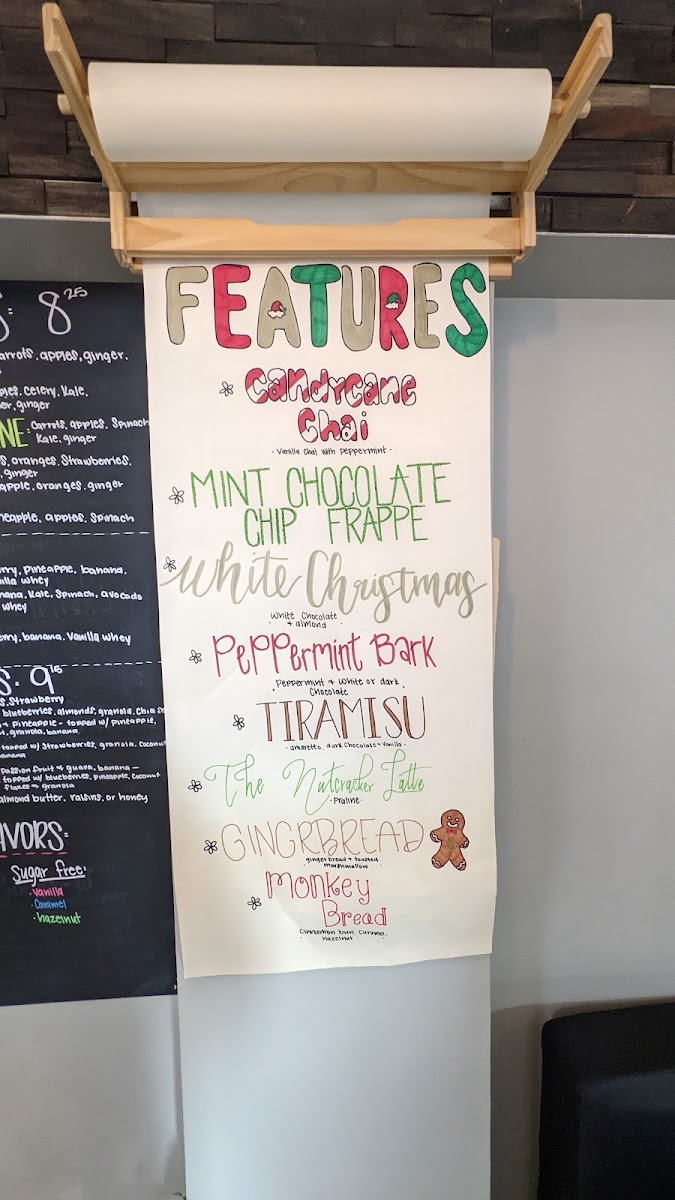 FEATURES
Candycane
Chai
· Vanilla Chai with peppermint ·
MINT CHOCOLATE
CHIP FRAPPE
White Christmas
White Chocolate
+ almond
Peppermint Bark
Peppermint + White or dark
Chocolate
TIRAMISU
· amaretto, dark Chocolate + Vanilla ·
The Nutcracker Latte
· Praline ·
GINGRBREAD
gingerbread + toasted
marshmallow
Monkey
Bread
Cinnamon bun, Caramel,
hazelnut
8 25
carrots, apples, ginger.
celery, Kale,
ginger
carrots, apples, Spinach
Kale, ginger
oranges, Strawberries,
ginger
apple, oranges, ginger
apples, Spinach
pineapple, banana,
whey
Kale, Spinach, avocado
whey
banana, Vanilla whey
9
Strawberry
blueberries, almonds, granola, Chia
+ Pineapple - topped w/ pineapple,
granola, banana
topped w/ Strawberries, granola, Coconut
Passion fruit + guava, banana —
topped w/ blueberries, pineapple, Coconut
flakes + granola
almond butter, raisins, or honey
Sugar free:
· Vanilla
· Caramel
· hazelnut